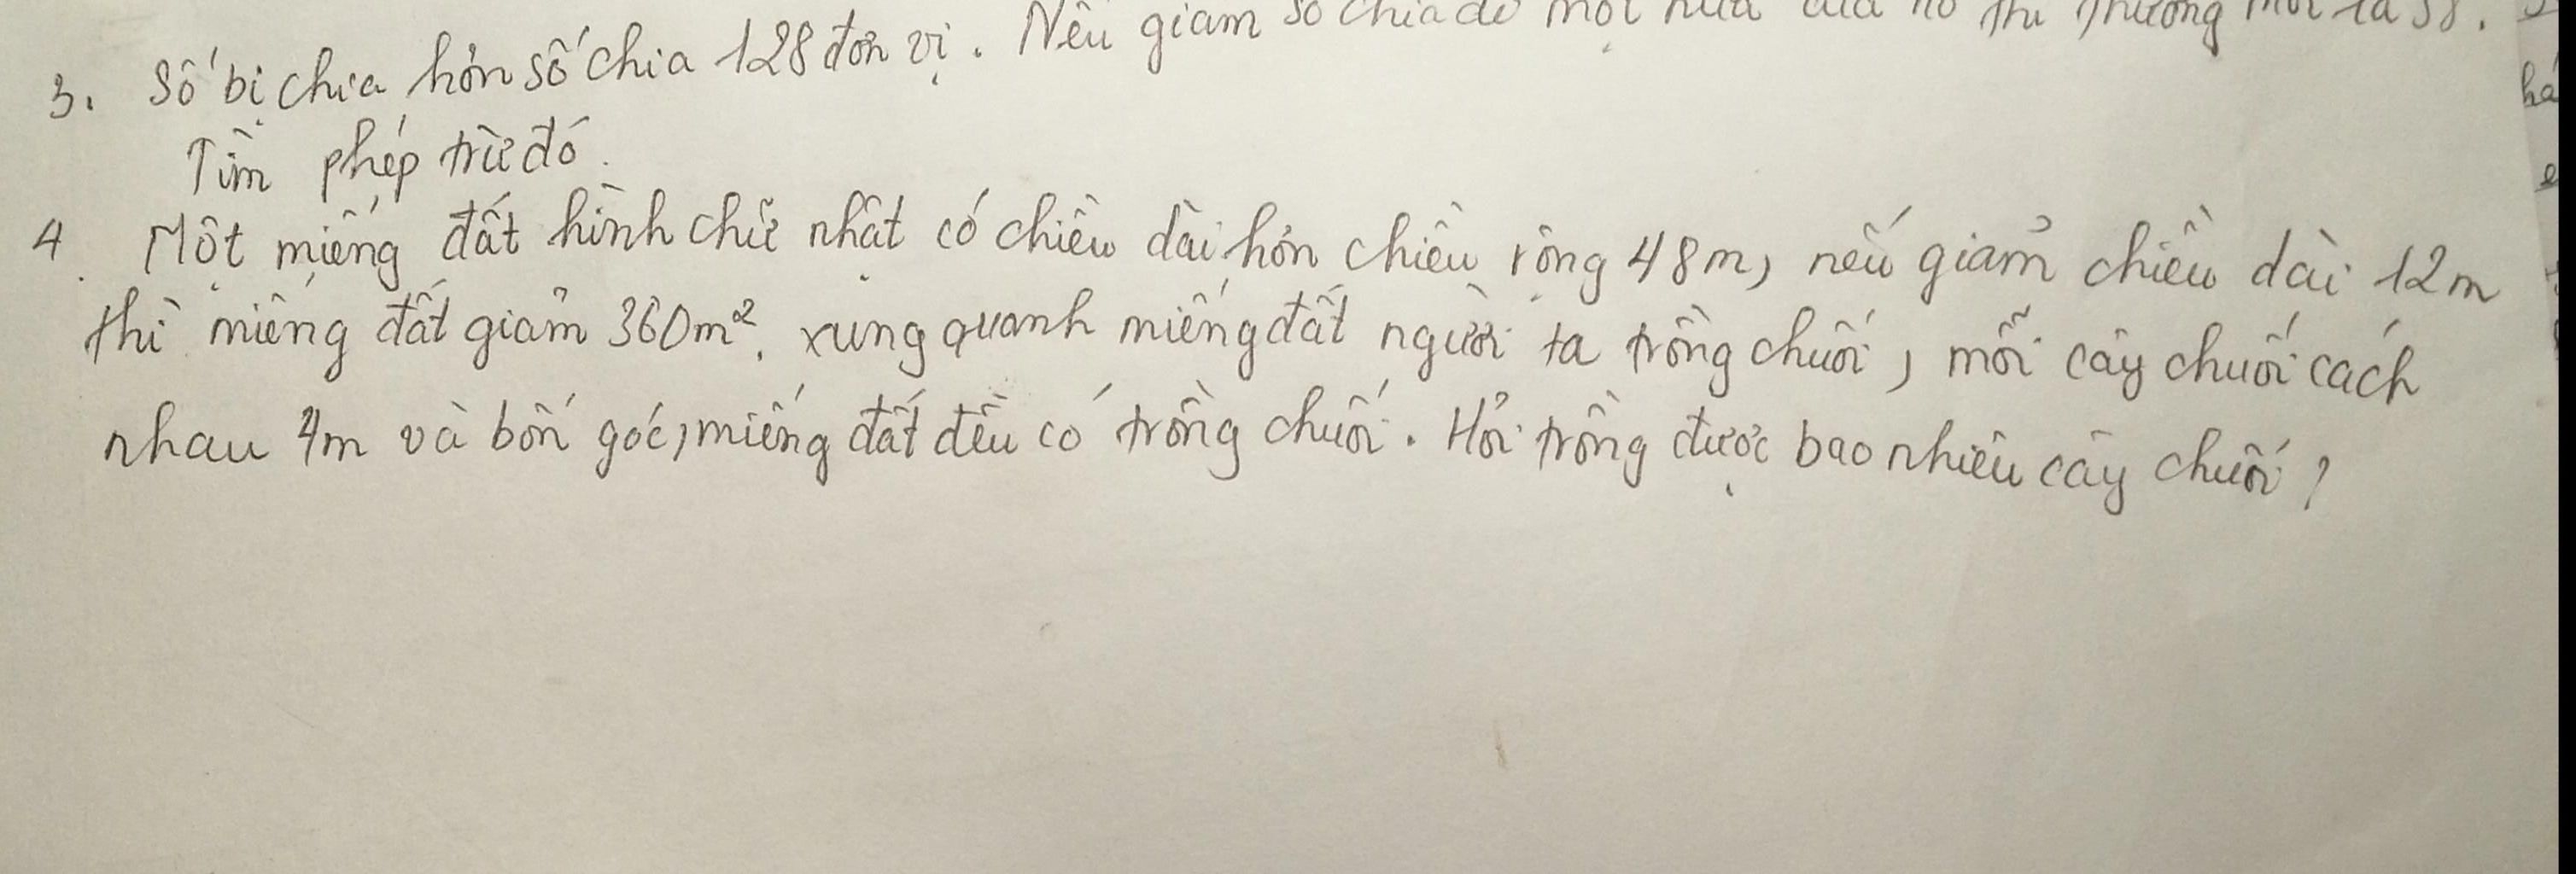 3. Số bị chia hơn số chia 128 đơn vị. Nếu giảm số chia đi một nửa của nó thì thương mới là 38.
Tìm phép trừ đó.
4. Một miếng đất hình chữ nhật có chiều dài hơn chiều rộng 48m, nếu giảm chiều dài 12m
thì miếng đất giảm 360m². xung quanh miếng đất người ta trồng chuối, mỗi cây chuối cách
nhau 4m và bốn góc, miếng đất đều có trồng chuối. Hỏi trồng được bao nhiêu cây chuối?